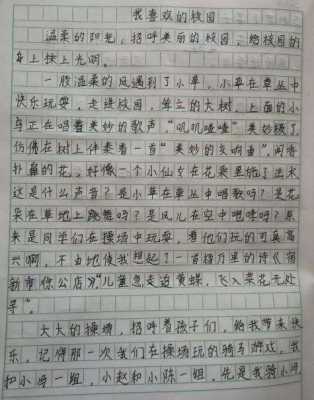 我喜欢的校园
温柔的阳光，招呼美丽的校园，给校园的
身上换上光明。
一股温柔的风遇到了小草，小草在草丛中
快乐玩耍，走进校园，耸立的大树，上面的小
鸟正在唱着美妙的歌声，“叽叽喳喳”美妙极了
仿佛在树上伴奏着一首“美妙的交响曲”，闻香
扑鼻的花，好像一个小仙女在花朵里
这是什么声音？是小草在草丛中唱歌吗？是花
朵在草地上跳舞吗？是风儿在空中吗？原
来是同学们在操场中玩耍，看他们玩的可真高
兴啊，不由地使我想起了一首杨万里的诗《宿
新市徐公店》“儿童急走追黄蝶，飞入菜花无处
寻”。
大大的操场，招呼着孩子们，给我带来快
乐，记得那一次我们在操场玩的骑马游戏，我
和小一组，小赵和小陈一组，先是我骑小